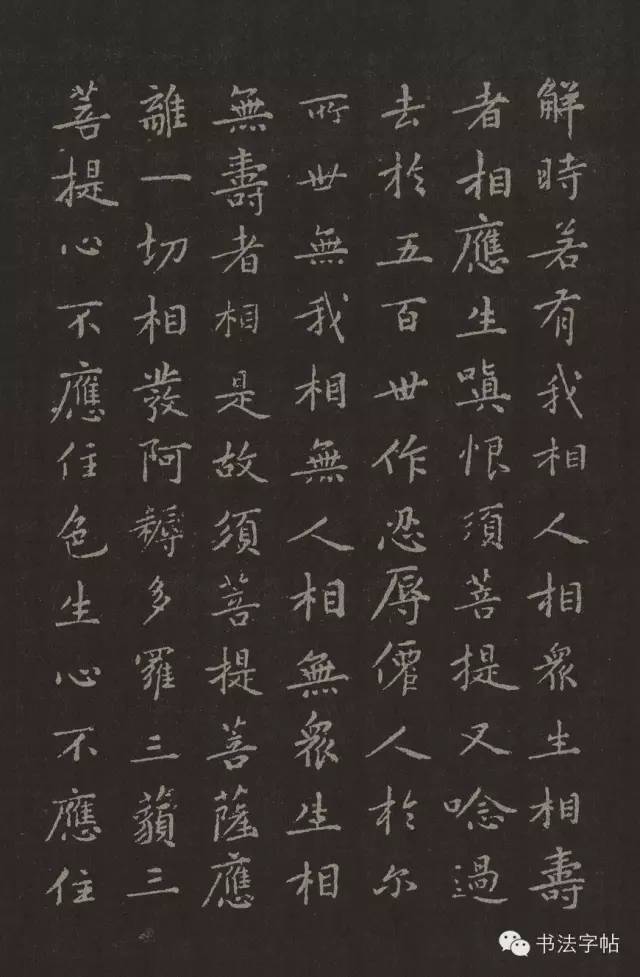 解時若有我相人相眾生相壽
者相應生嗔恨須菩提又唸過
去於五百世作忍辱僊人於尔
所世無我相無人相無眾生相
無壽者相是故須菩提菩薩應
離一切相發阿耨多羅三藐三
菩提心不應住色生心不應住
书法字帖